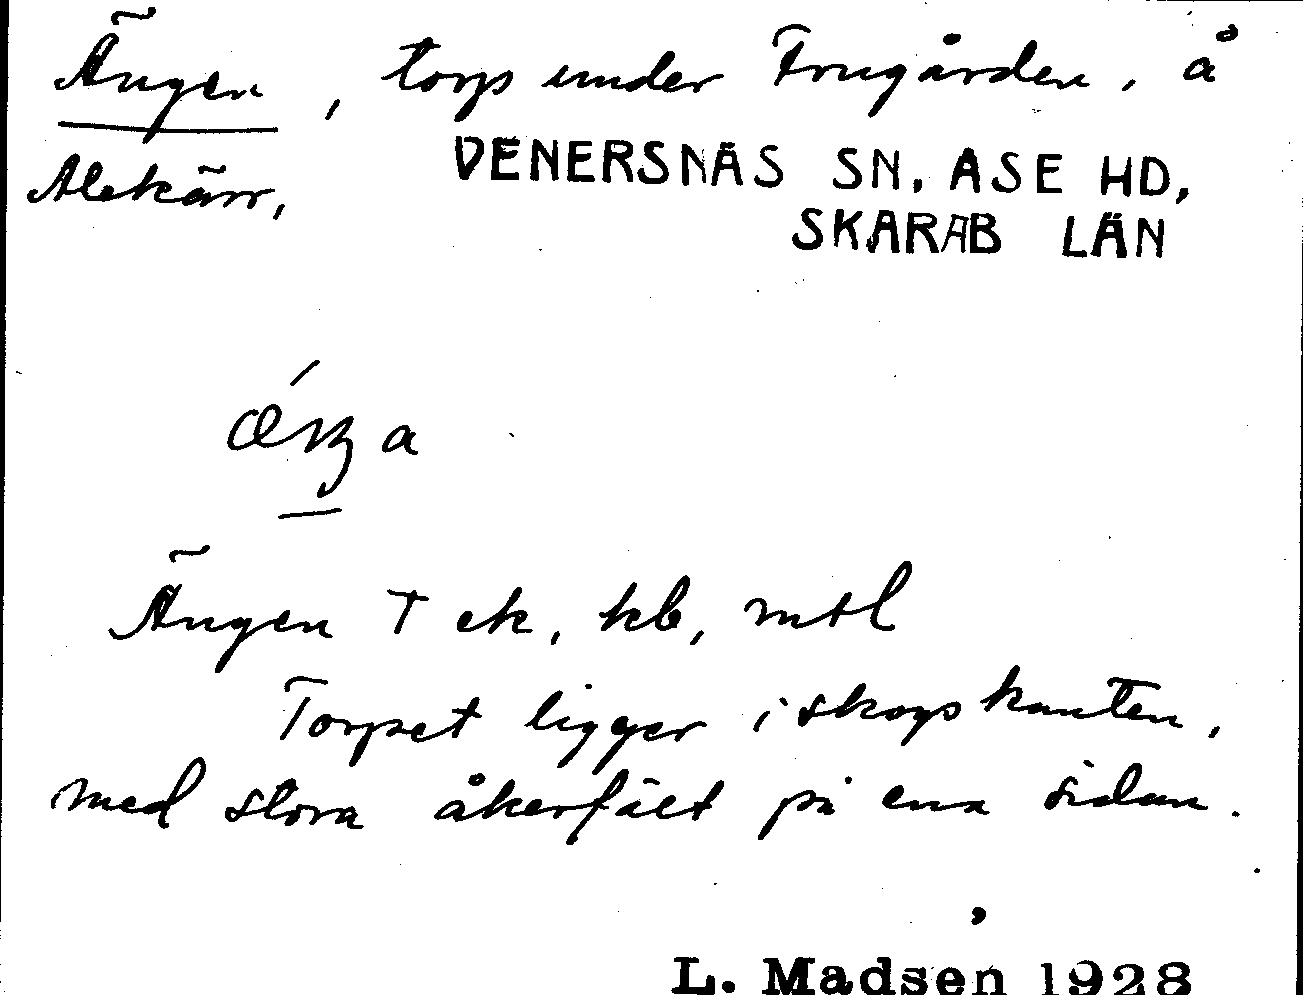 Ängen, torp under Frugården, å
Alekärr, VENERSNÄS SN. ÅSE HD,
SKARAB LÄN
Ängen T ek, kb, mtl
Torpet ligger i skogskanten,
med stora åkerfält på ena sidan.
L. Madsen 1928